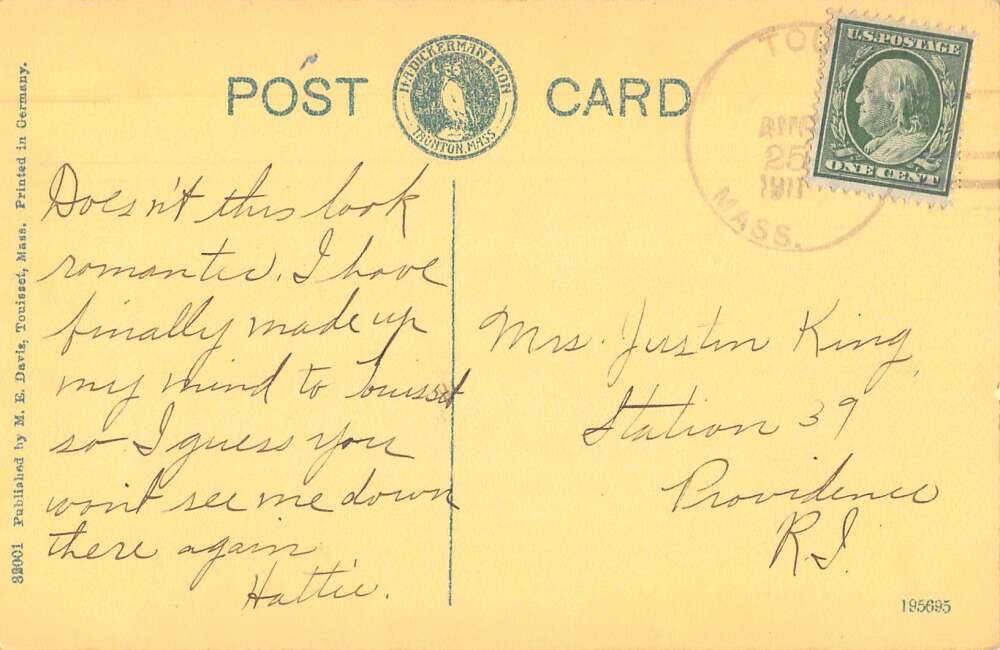 32001 Published by M. E. Davis, Touisset, Mass. Printed in Germany.
POST CARD
H.A. DICKERMAN & SON
TAUNTON, MASS
TOU
AUG
25
1911
MASS.
U.S. POSTAGE
ONE CENT
Doesn't this look
romantic. I have
finally made up
my mind to Touisset
so I guess you
won't see me down
there again
Hattie.
Mrs. Justin King,
Station 39
Providence
R.I.
195695